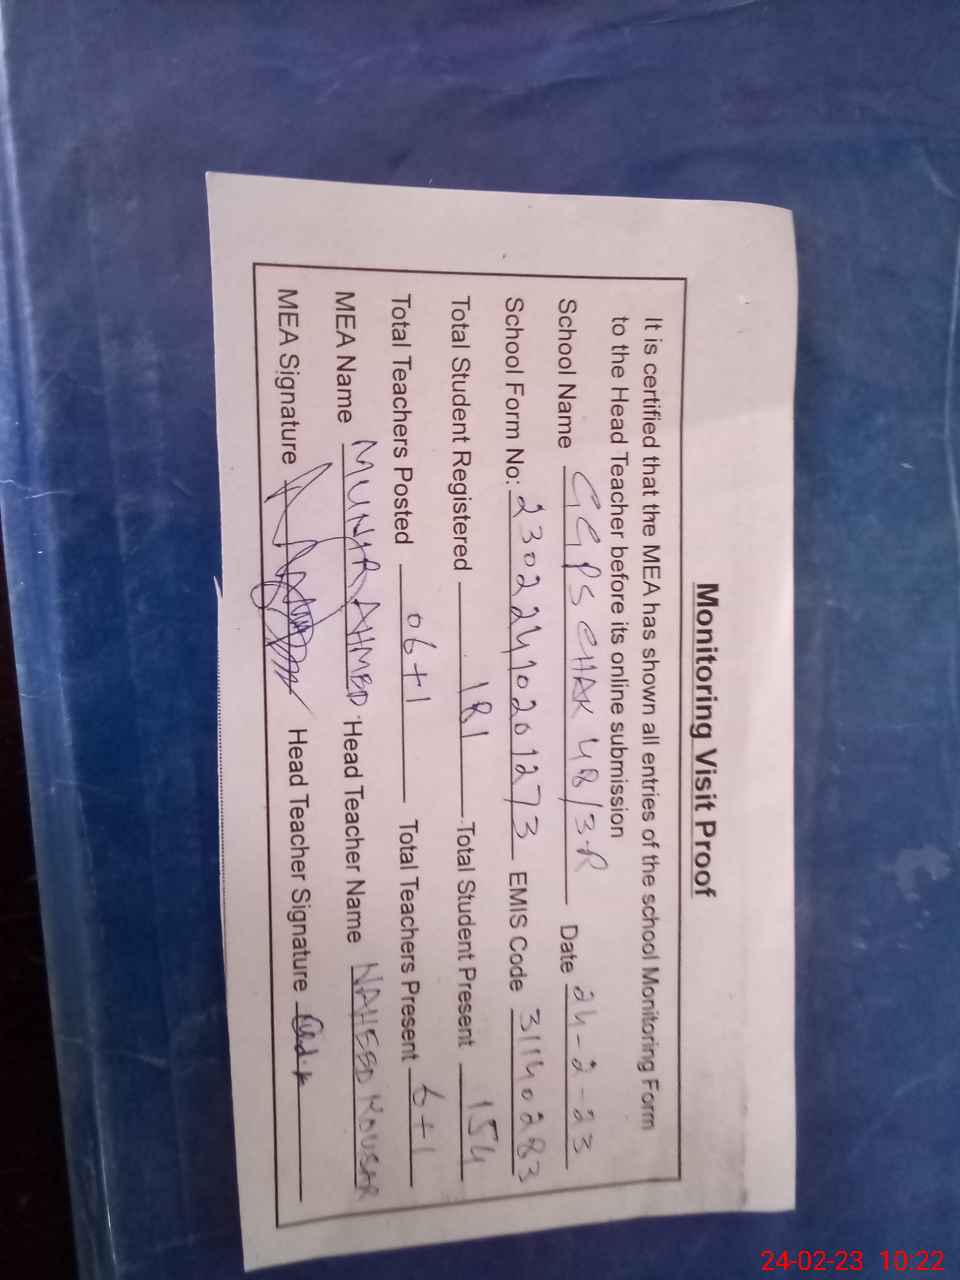 Monitoring Visit Proof
It is certified that the MEA has shown all entries of the school Monitoring Form
to the Head Teacher before its online submission
School Name GGPS CHAK 48/3-R Date 24-2-23
School Form No: 23022410201273 EMIS Code 31140283
Total Student Registered 181 Total Student Present 154
Total Teachers Posted 06+1 Total Teachers Present 6+1
MEA Name MUNIR AHMED Head Teacher Name NAHEED KOUSAR
MEA Signature Head Teacher Signature
24-02-23 10:22